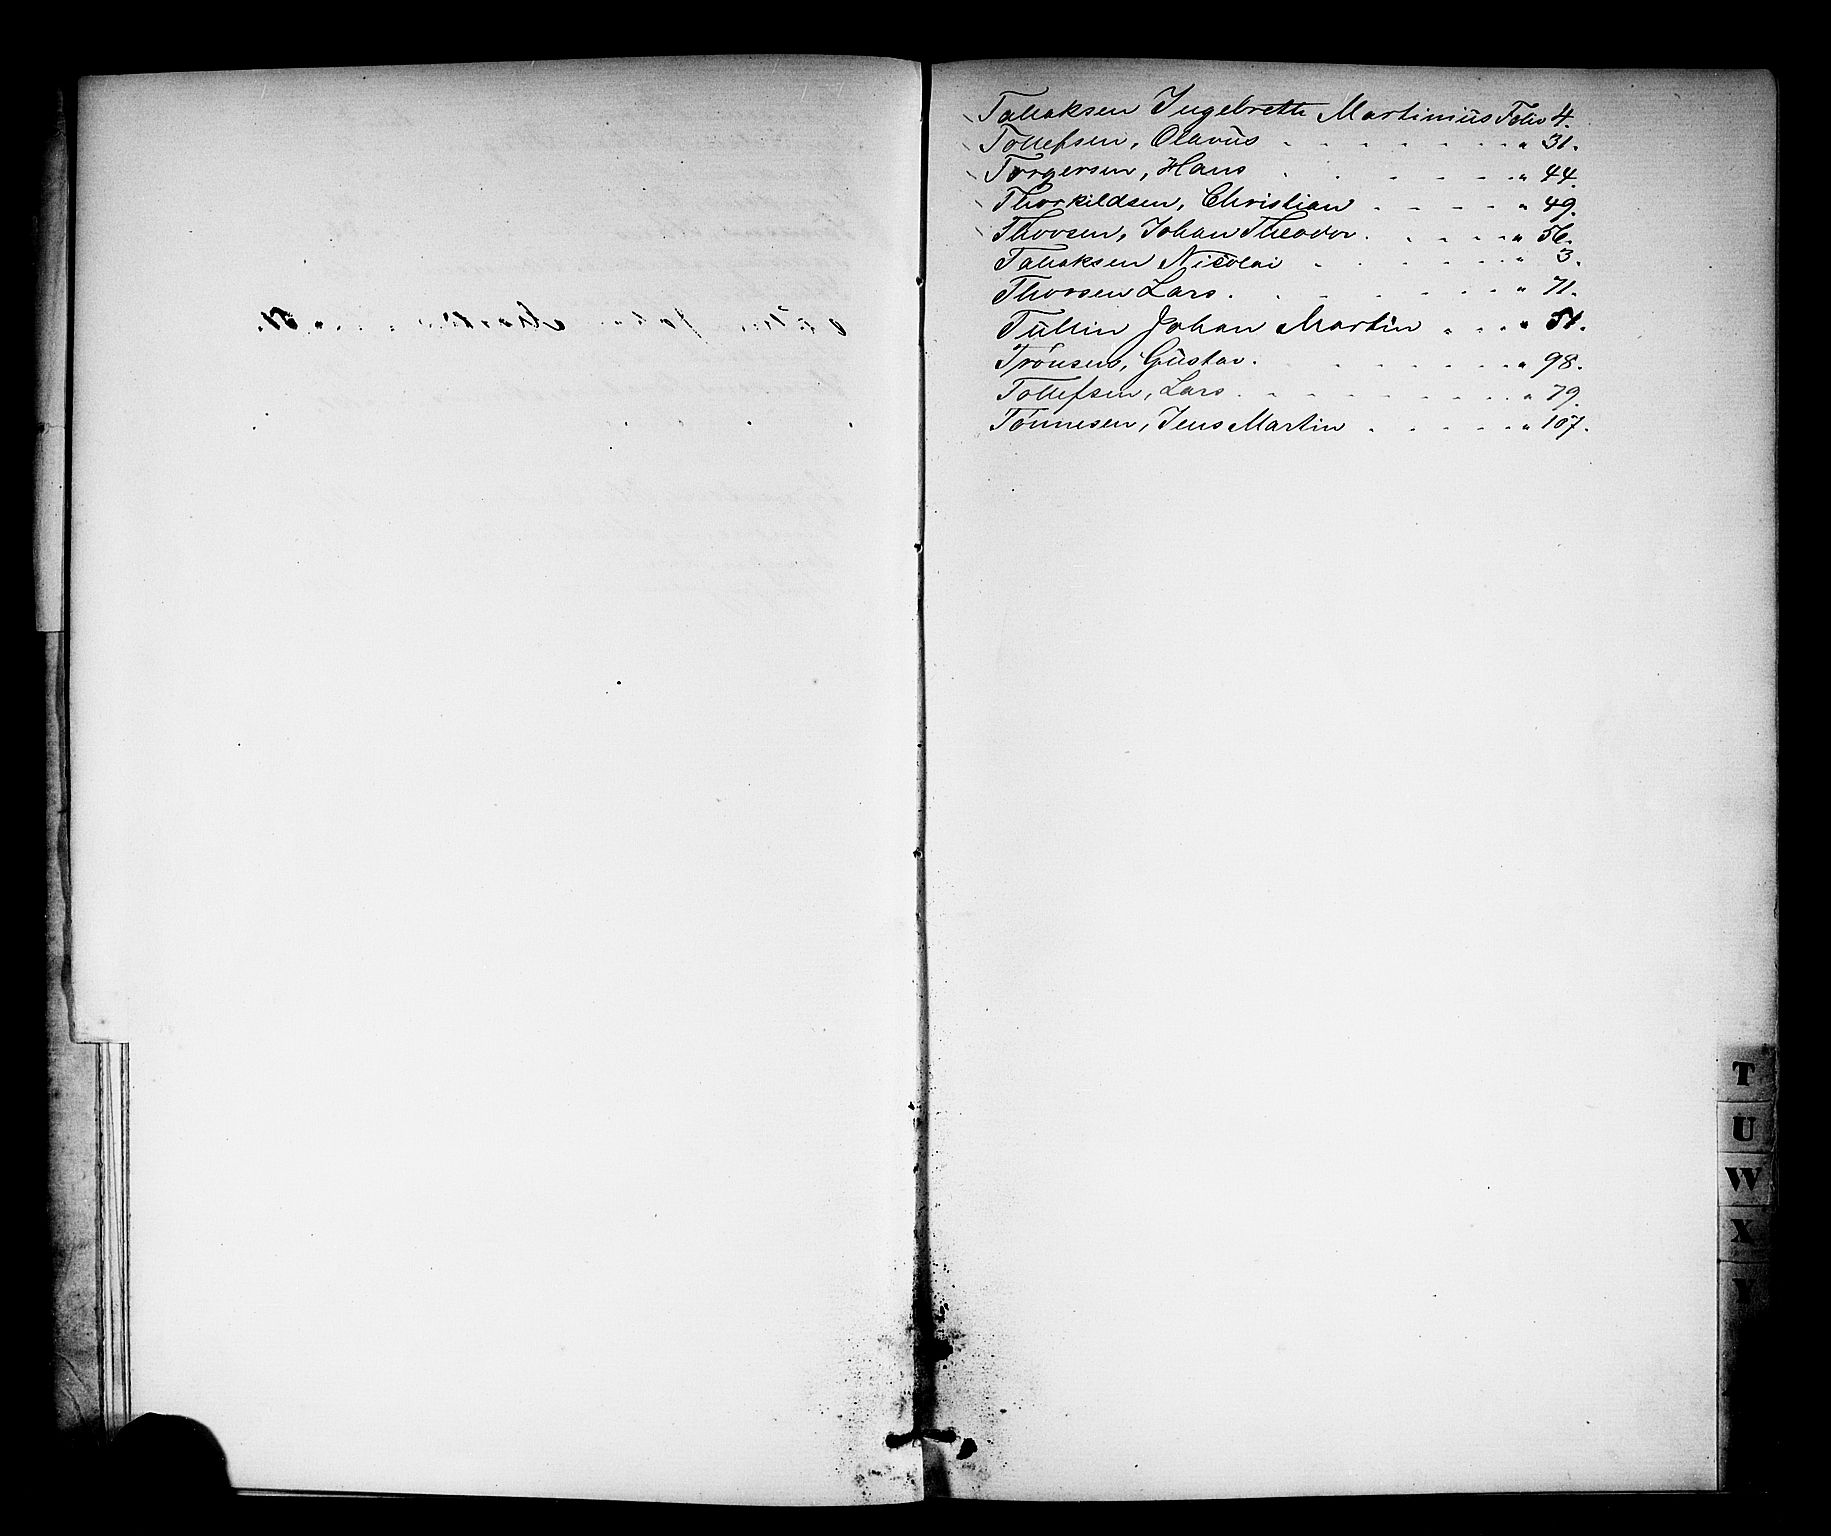 Tallaksen Ingebreth Martinius Folio 4.
Tollefsen, Olavus . . . . . . . " 31.
Torgersen, Hans . . . . . . " 44.
Thorkildsen, Christian . . . . " 49.
Thorsen, Johan Theodor . . . . " 56.
Tallaksen Nicolai . . . . . . " 3.
Thorsen Lars . . . . . . . " 71.
Tullin Johan Martin . . . " 51.
Trönsen, Gustav . . . . . . . " 98.
Tollefsen, Lars . . . . . . . . " 79.
Tönnesen, Jens Martin . . . . " 107.
T
U
W
X
Y